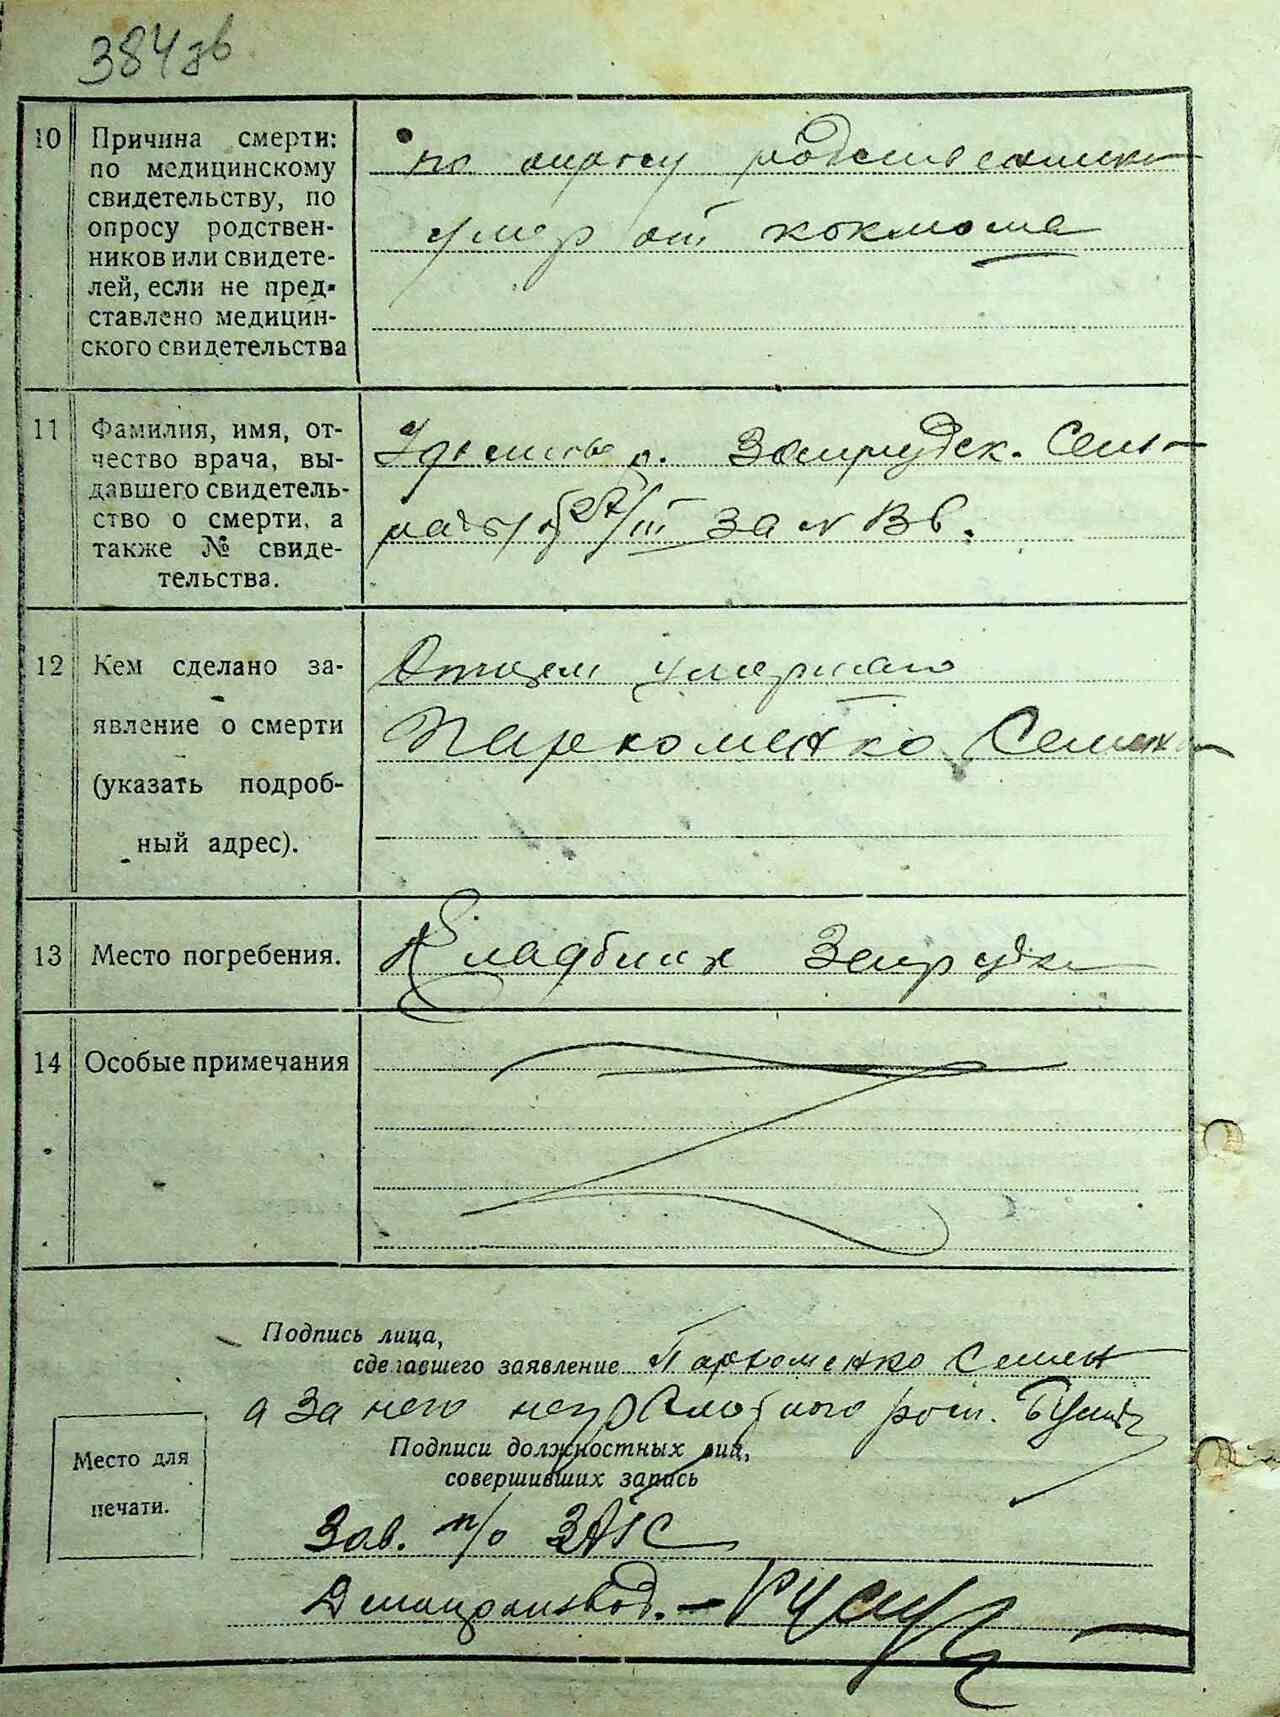 384зв
10 Причина смерти: по медицинскому свидетельству, по опросу родствен-ников или свидете-лей, если не пред-ставлено медицин-ского свидетельства
по опросу родственники
умер от коклюша
11 Фамилия, имя, от-чество врача, вы-давшего свидетель-ство о смерти, а также № свиде-тельства.
Запрудск. Сель-
27/III за №
12 Кем сделано за-явление о смерти (указать подроб-ный адрес).
Отцем умершаго
Пархоменко Семен
13 Место погребения.
Кладбище Запрудка
14 Особые примечания
Подпись лица,
сделавшего заявление Пархоменко Семен
а за него
Подписи должностных лиц,
совершивших запись
Место для
печати.
Зав. п/о ЗАГС
Делопроизвод.